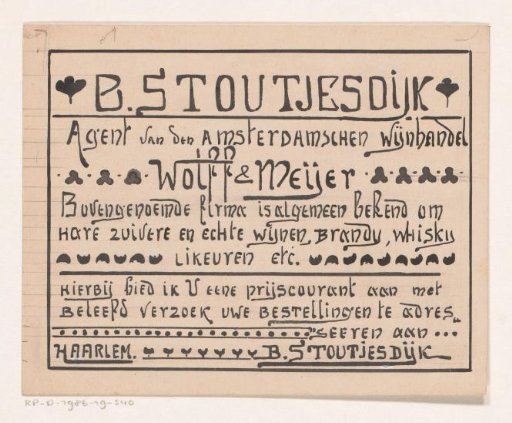 B. STOUTJESDIJK
Agent van den AMSTERDAMSCHEN Wijnhandel
Wolff & Meijer
Bovengenoemde firma is algemeen bekend om
HARE zuivere en echte wijnen, BRANDY, WHISKY
LIKEUREN etc.
HIERBIJ bied ik U eene prijscourant aan met
BELEEFD VERZOEK UWE BESTELLINGEN te adres„
„SEEREN AAN
HAARLEM. B. STOUTJESDIJK
RP-D-1986-19-540